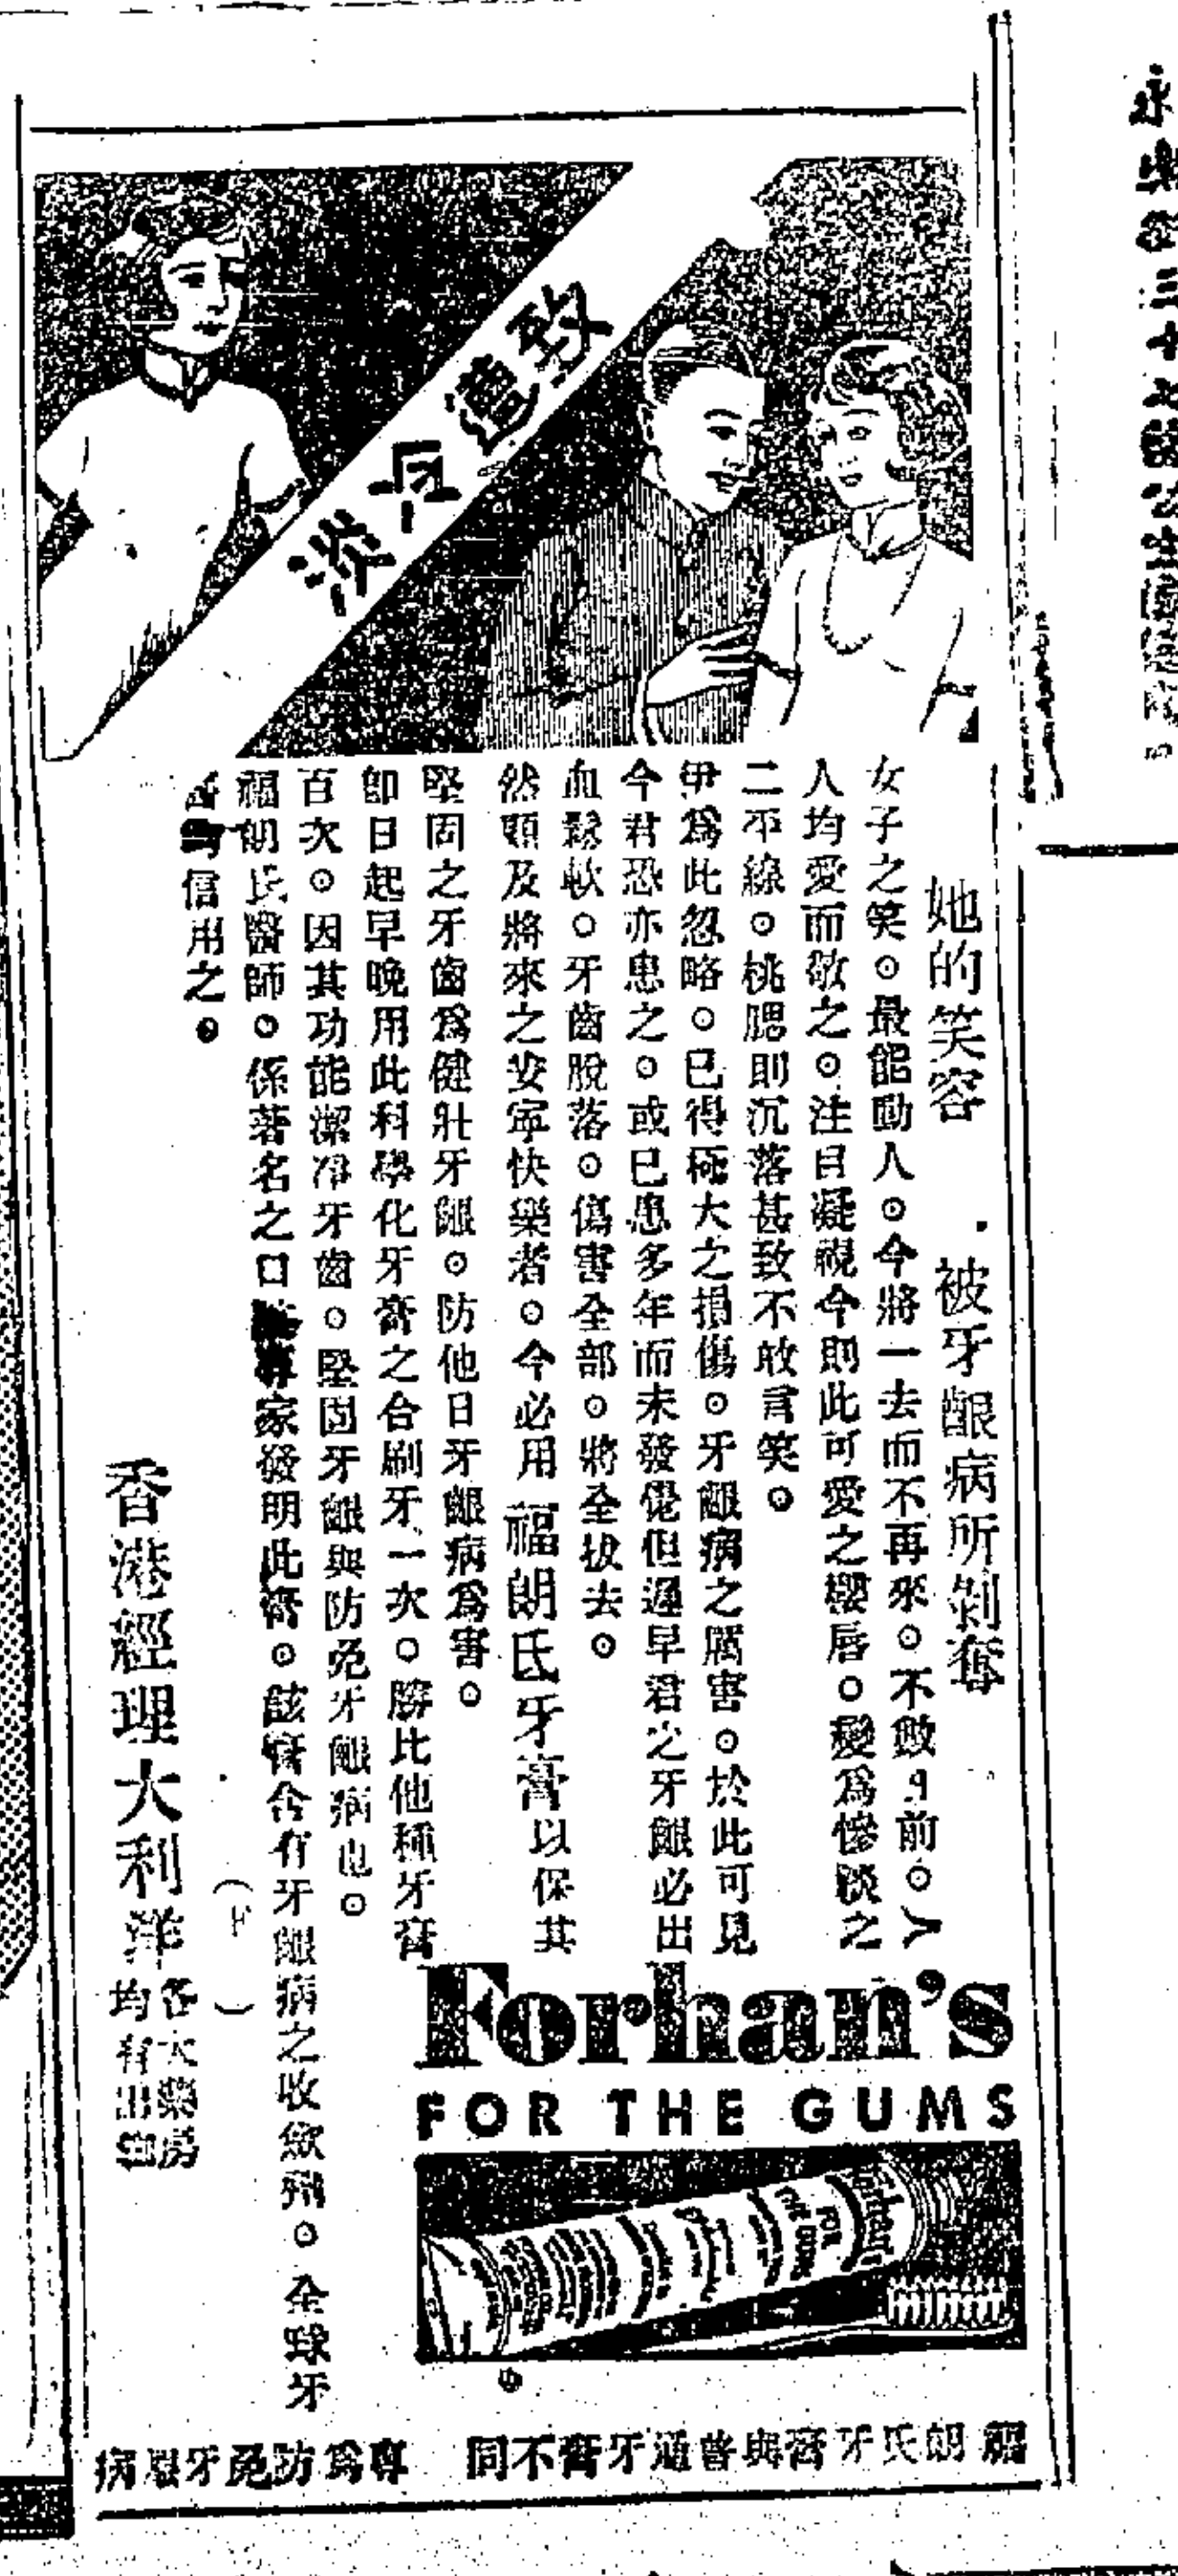 致遭冷淡
她的笑容 被牙齦病所剝奪
女子之笑。最能動人。今將一去而不再來。不數月前。人
人均愛而敬之。注目凝視今則此可愛之櫻唇。變爲慘淡之
二平線。桃腮則沉落甚致不敢言笑。
伊爲此忽略。已得極大之損傷。牙齦病之厲害。於此可見
今君恐亦患之。或已患多年而未發覺但遲早君之牙齦必出
血鬆軟。牙齒脫落。傷害全部。將全拔去。
然顧及將來之安寧快樂者。今必用 福朗氏牙膏以保其
堅固之牙齒爲健壯牙齦。防他日牙齦病爲害。
卽日起早晚用此科學化牙膏之合刷牙一次。勝比他種牙膏
百次。因其功能潔淨牙齒。堅固牙齦與防免牙齦病也。
福朗氏醫師。係著名之口專家發明此膏。該膏含有牙齦病之收歛劑。全球牙
信用之。
(F)
香港經理大利洋
各大藥房
均有出售
Forhan's
FOR THE GUMS
福朗氏牙膏與普通牙膏不同 專爲防免牙齦病